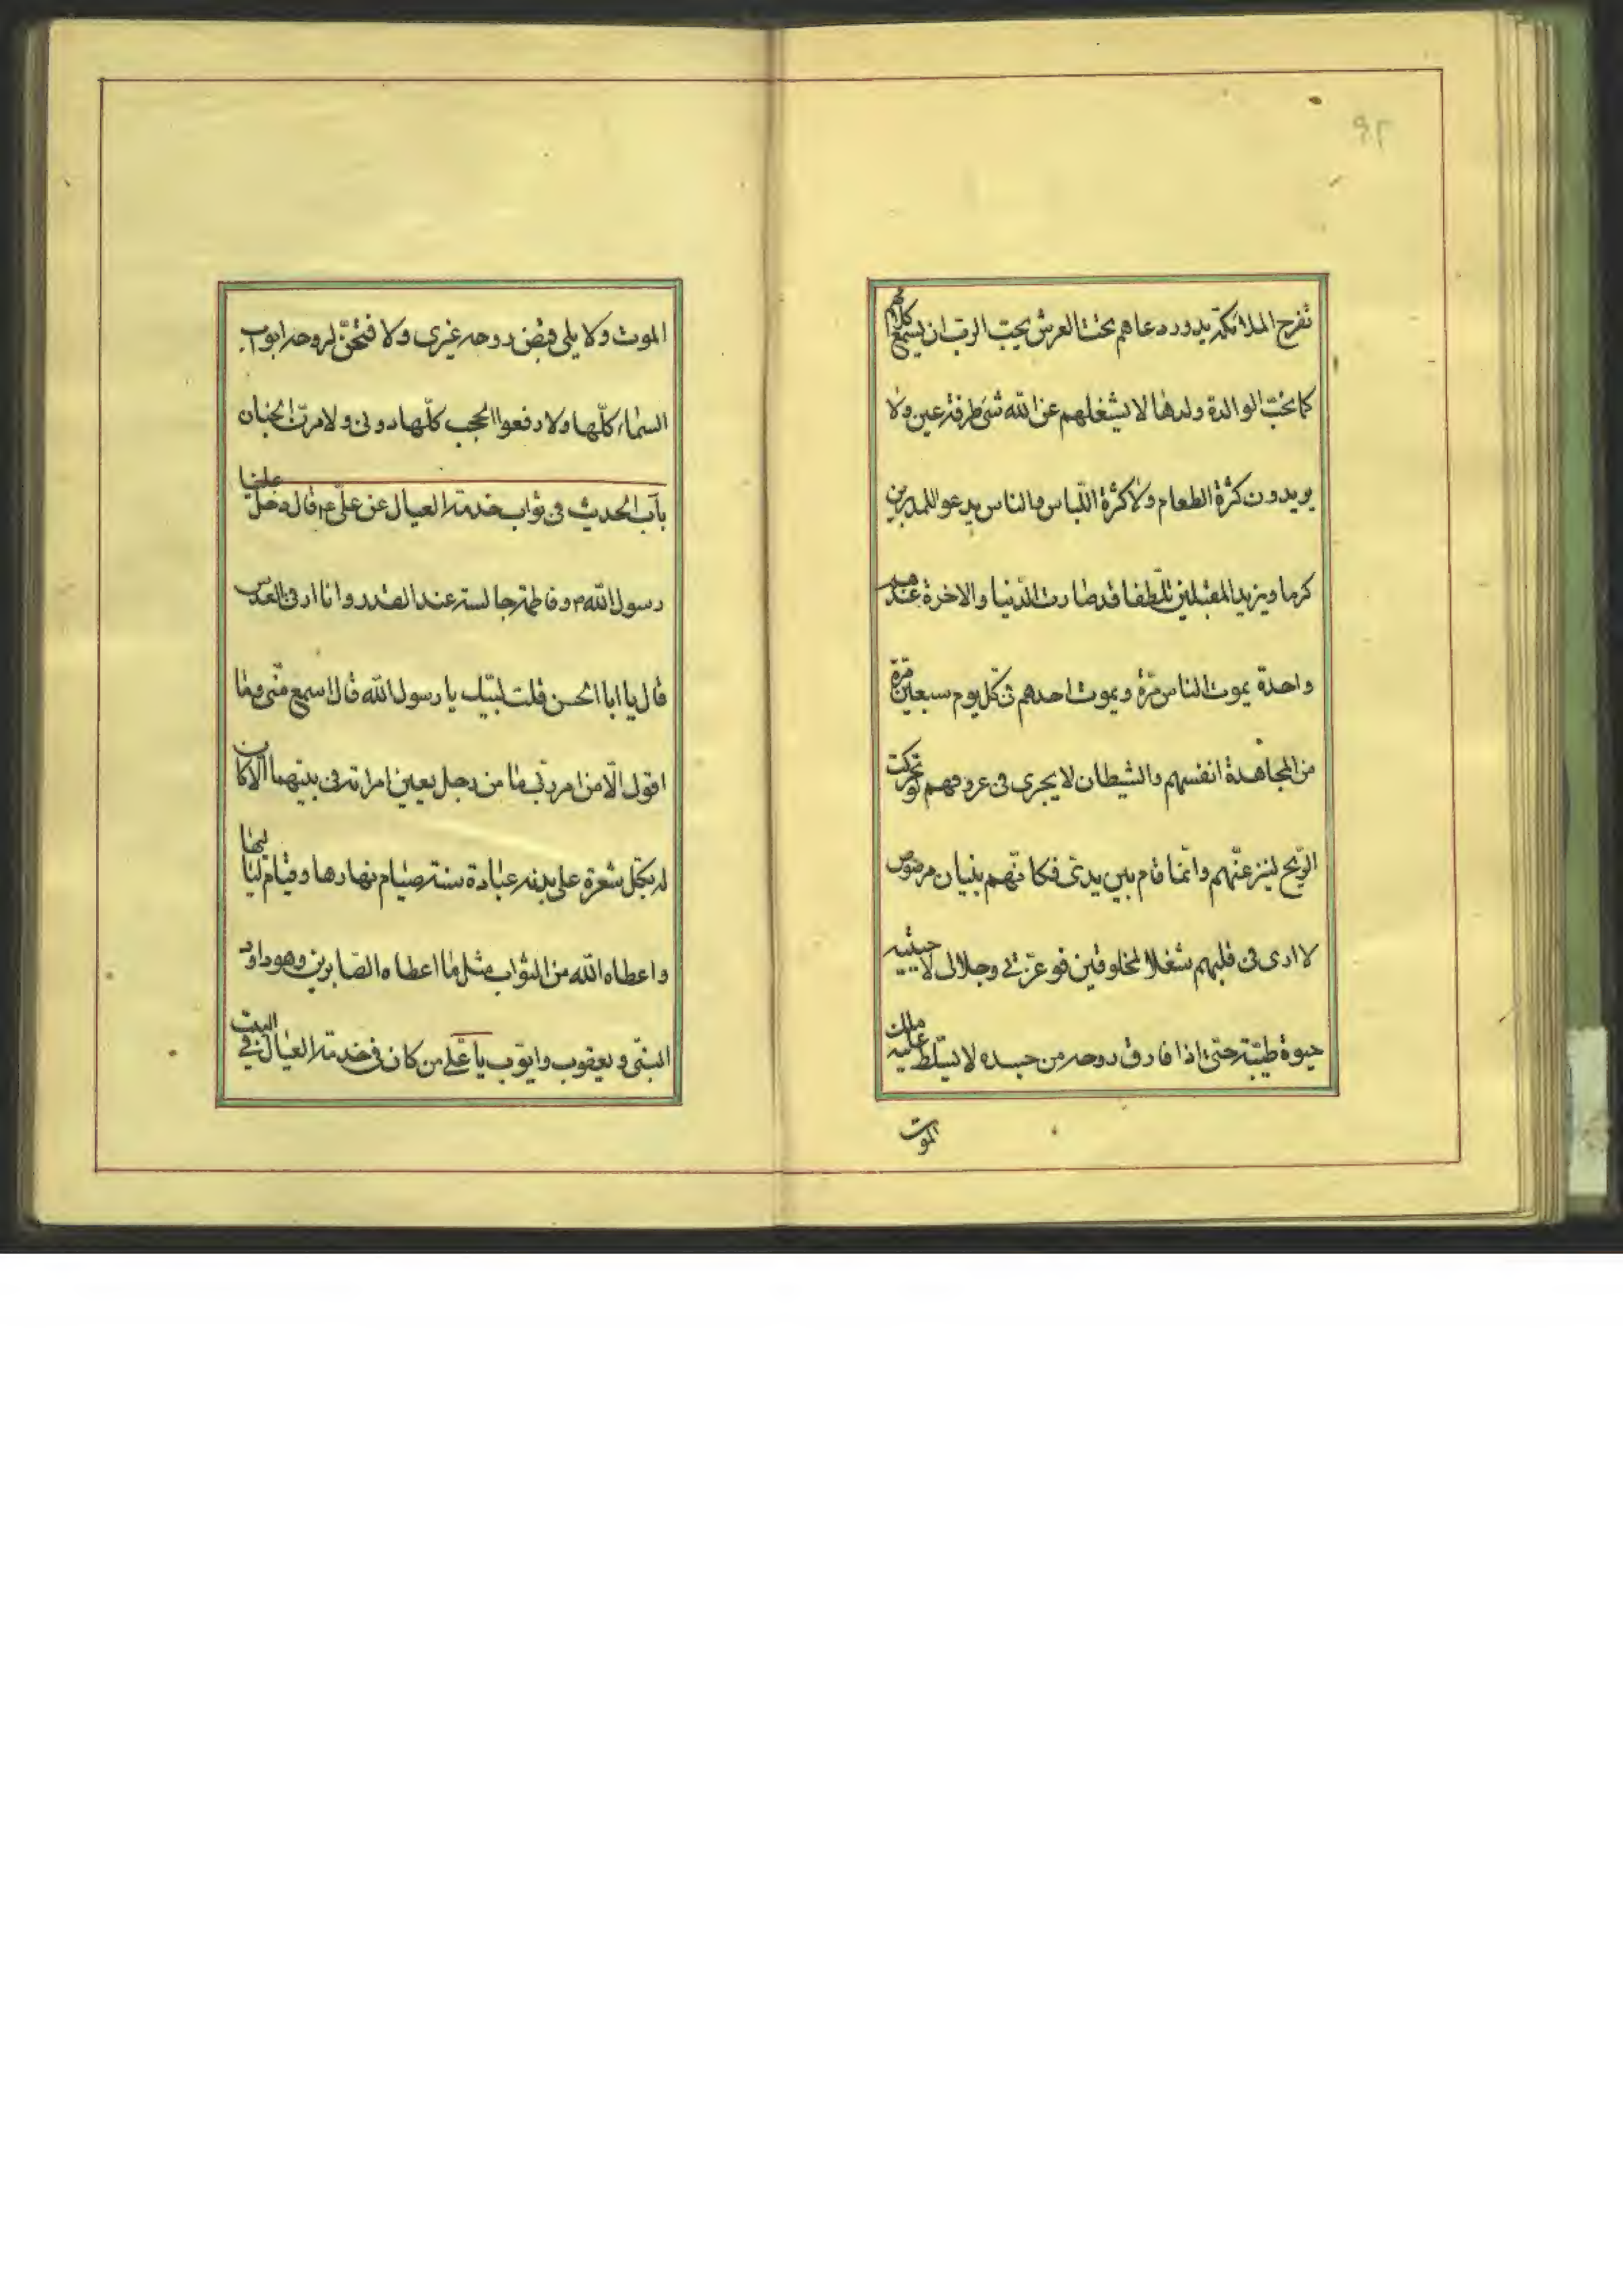 ٩٢
تفرح الملائكة يدور دعاهم تحت العرش يحبّ الربّ ان يسمع كلامهم
كما تحبّ الوالدة ولدها لا يشغلهم عن الله شئ طرفة عين ولا
يريدون كثرة الطعام ولا كثرة اللّباس والناس يدعو للمدبرين
كرما ويزيد المقبلين تلّطفا قد صارت الدّنيا والاخرة عندهم
واحدة يموت الناس مرّة ويموت احدهم فى كل يوم سبعين مرّة
من المجاهدة انفسهم والشيطان لا يجرى فى عروقهم لو تحركت
الرّيح لتزعزعهم وانما قام بين يدىّ فكانّهم بنيان مرصوص
لا ارى فى قلبهم شغلا لمخلوقين فوعزّتى وجلالى لاحيينه
حيوة طيّبة حتى اذا فارق روحه من جسده لا يسلّط عليه ملك
الموت
الموت ولا يلى قبض روحه غيرى ولا فتحنّ لروحه ابواب
السّماء كلّها ولا رفعوا الحجب كلّها دونى ولا مرّن الجنان
بآب الحديث فى ثواب خدمة العيال عن علىّ ع قال دخل علينا
رسول الله ص وفاطمة جالسة عند القدر وانا ارقى العدس
قال يا ابا الحسن قلت لبّيك يا رسول الله قال اسمع منّى وما
اقول الّا من امر ربّى ما من رجل يعين امراته فى بيتهما الّا كان
له بكلّ شعرة على بدنه عبادة سنة صيام نهارها وقيام لياليها
واعطاه الله من الثواب مثل ما اعطاه الصّابرين وهو داود
النبّى ويعقوب وايّوب يا علّى من كان فى خدمة العيال فى البيت